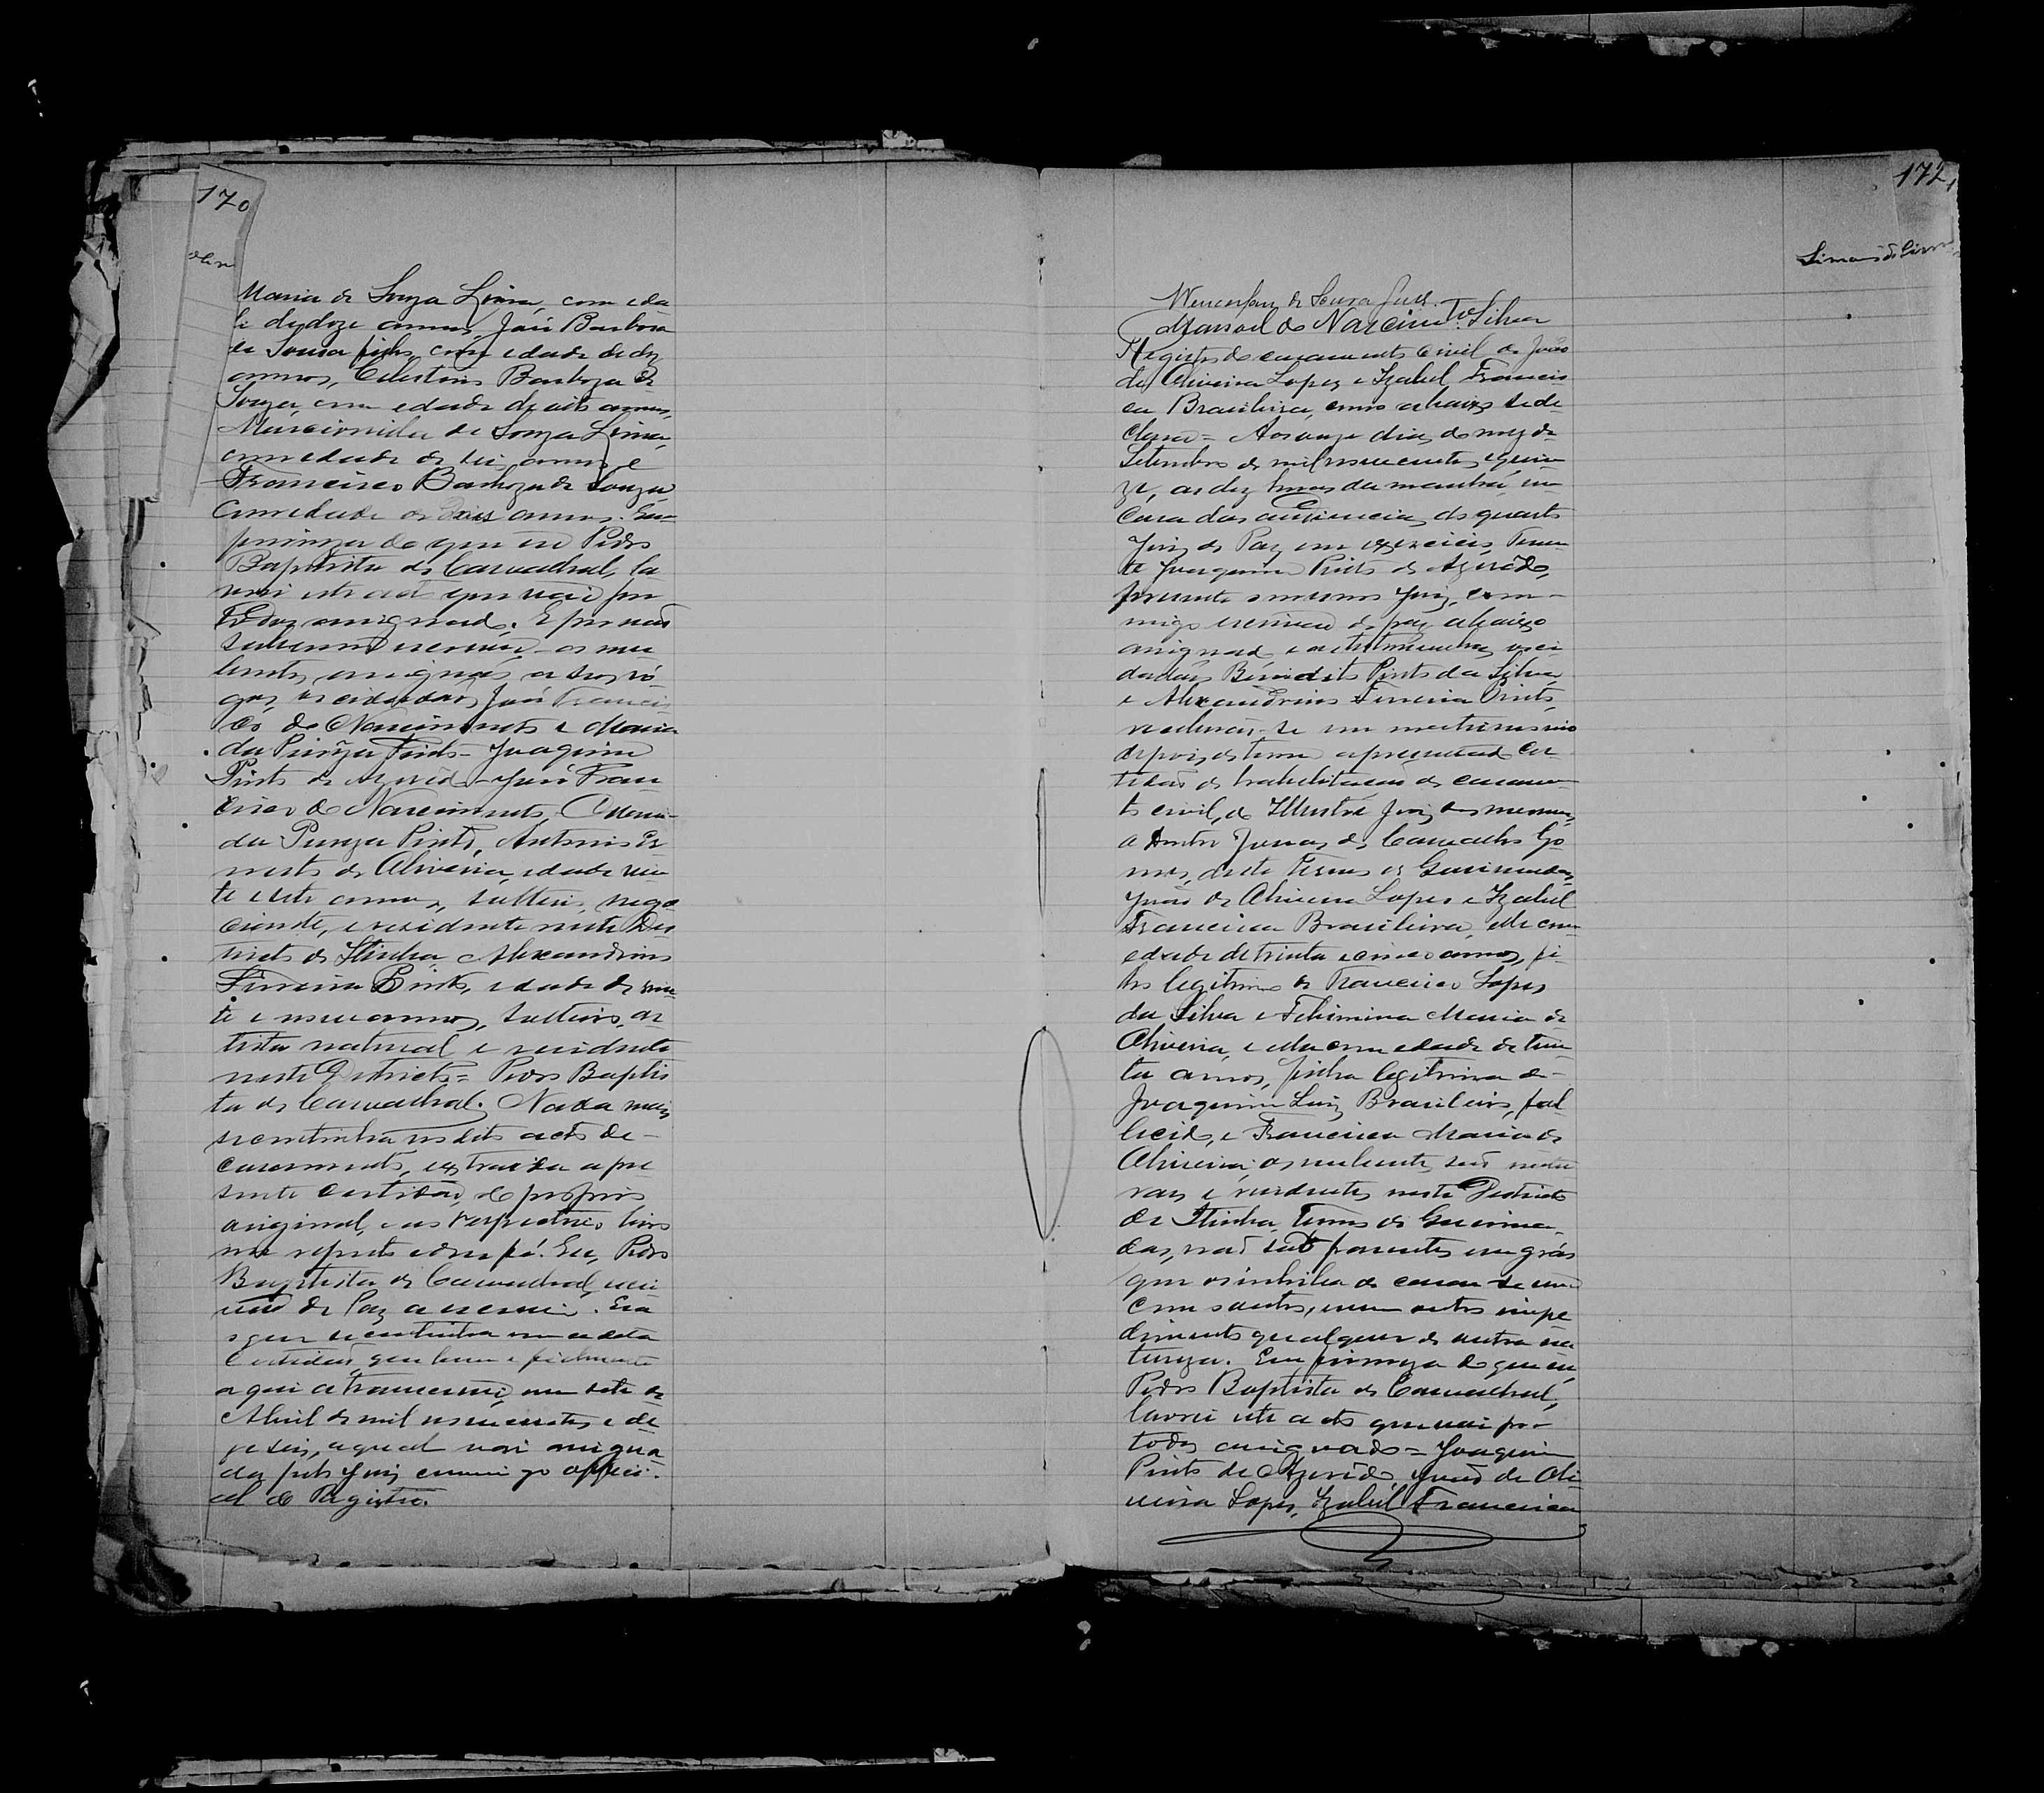 170
Maria de Souza Lima, com eda
de de doze annos, José Barbosa
de Sousa filho, com edade de dez
annos, Celestino Barboza de
Souza, com edade de oito annos,
Marcionilia de Souza Lima,
com edade de seis annos e
Francisco Barboza de Souza
com edade de dois annos. Em
firmeza do que eu Pedro
Baptista do Carvalhal, la
vrei este acto que vai por
todos assignado. E por não
saberem escrever os nu
bentes, assignão a seos ró
gos, os cidadãos José Francis
co do Nascimento e Maria
da Pureza Pinto - Joaquim
Pinto de Azevedo - José Fran
cisco do Nascimento, Maria
da Pureza Pinto, Antonio Er
nesto de Oliveira, edade vin
te e sete annos, solteiro, nego
ciante, e residente neste Dis
tricto de Itiuba, Alexandrino
Ferreira Pinto, edade de vin
te e nove annos, solteiro, ar
tista natural e residente
neste Districto = Pedro Baptis
ta do Carvalhal. Nada mais
se continha no dito acto de
casamento, extraida a pre
sente certidão, do proprio
original, e ao respectivo livro
me reporto e dou fé. Eu, Pedro
Baptista do Carvalhal, escri
vão de Paz a escrevi. Era
o que se continha em a dita
Certidão, que bem e fielmente
aqui a transcrevi, em sete de
Abril de mil novecentos e de
zeseis, a qual vai assigna
da pelo Juiz commigo offici
al do Registro.
172
Wencesláu de Souza
Manoel do Nascimto Silva
Registro do casamento civil de João
de Oliveira Lopes e Izabel Francis
ca Brasileira, como abaixo se de
clara = Aos onze dias do mez de
Setembro de mil novecentos e quin
ze, as dez horas da manhã, em
Casa das audiencias do quarto
Juiz de Paz em exercicio, Tenen
te Joaquim Pinto de Azevêdo,
presente o mesmo Juiz, com
migo escrivão de paz abaixo
assignado e as testemunhas os ci
dadãos Benedito Pinto da Silva,
e Alexandrino Ferreira Pinto,
receberão-se em matrimonio
depois de terem apresentado cer
tidão de habilitação de casamen
to civil, do Illustre Juiz dos mesmos,
o Doutor Jonas de Carvalho Go
mes, deste Termo de Queimadas,
João de Oliveira Lopes e Izabel
Francisca Brasileira, elle com
edade de trinta e cinco annos, fi
lho legitimo de Francisco Lopes
da Silva e Felismina Maria de
Oliveira, e ella com edade de trin
ta annos, filha legitima de
Joaquim Luiz Brasileiro, fal
lecido, e Francisca Maria de
Oliveira; os nubentes são natu
raes e residentes neste Districto
de Itiuba, Termo de Queima
das, não são parentes em gráo
que os inhiba de casar-se um
com o outro, nem outro impe
dimento qualquer de outra na
tureza. Em firmeza do que eu,
Pedro Baptista do Carvalhal,
lavrei este acto que vai por
todos assignado = Joaquim
Pinto de Azevêdo, João de Oli
veira Lopes, Izabel Francisca